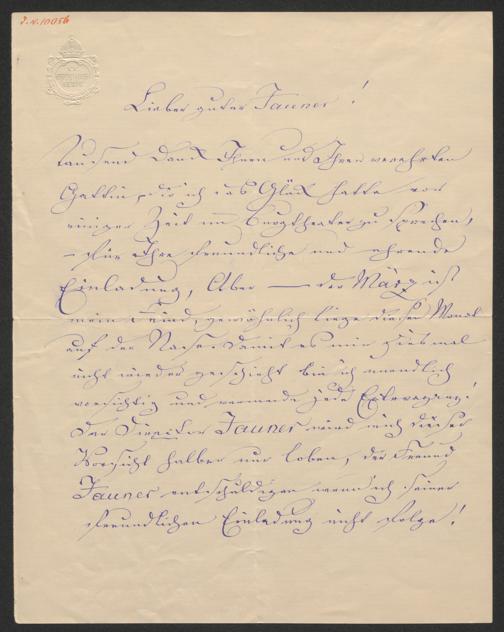 J.N. 10056
Lieber guter Jauner!
Tausend Dank Ihnen und Ihrer verehrten
Gattin, die ich das Glück hatte vor
einiger Zeit im Burgtheater zu sprechen,
– für Ihre freundliche und ehrende
Einladung, Aber — der März ist
mein Feind, gewöhnlich liege diesen Monat
auf der Nase. Damit es mir diesmal
nicht wieder geschieht bin ich unendlich
vorsichtig und vermeide jede Extravaganz!
Der Director Jauner wird mich dieser
Vorsicht halber nur loben, der Freund
Jauner entschuldigen wenn ich seiner
freundlichen Einladung nicht folge!